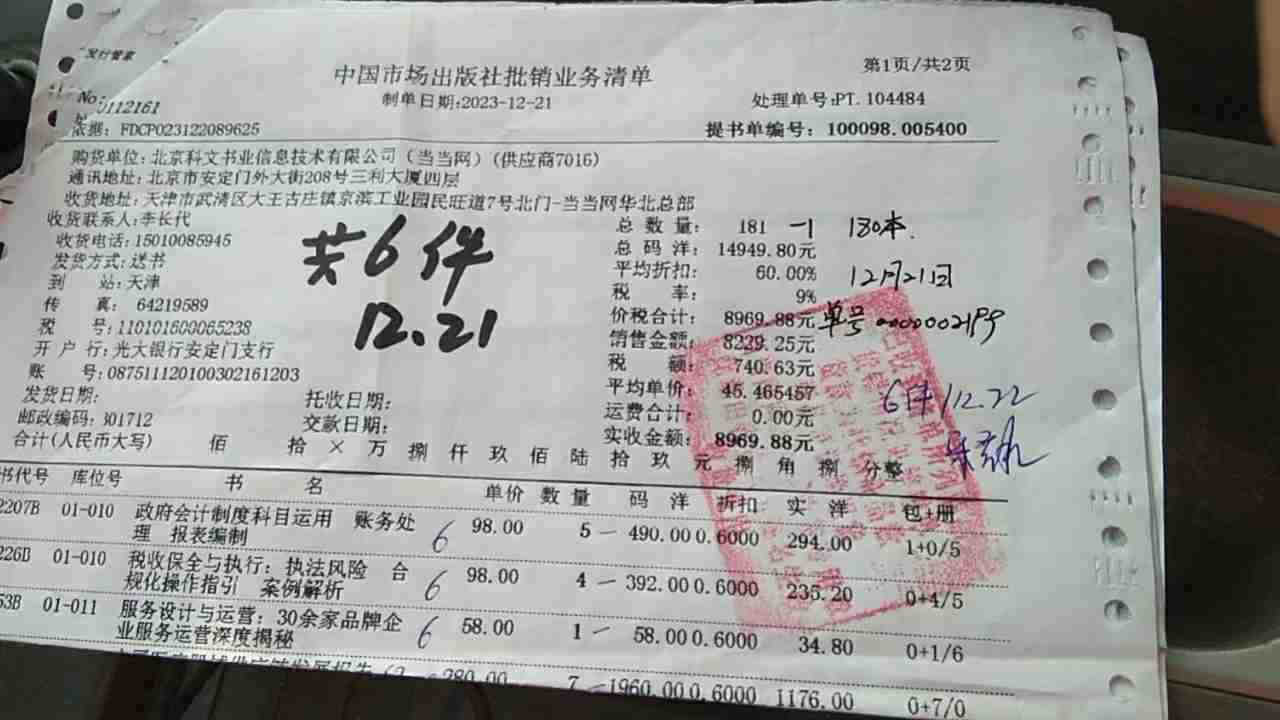 发行管家
中国市场出版社批销业务清单
第1页/共2页
No: 0112161
制单日期:2023-12-21
处理单号:PT.104484
依据: FDCP023122089625
提书单编号: 100098.005400
购货单位:北京科文书业信息技术有限公司(当当网)(供应商7016)
通讯地址:北京市安定门外大街208号三利大厦四层
收货地址:天津市武清区大王古庄镇京滨工业园民旺道7号北门-当当网华北总部
收货联系人:李长代
收货电话:15010085945
发货方式:送书
到 站:天津
传 真: 64219589
税 号:110101600065238
开 户 行:光大银行安定门支行
账 号:087511120100302161203
发货日期:
托收日期:
邮政编码:301712
交款日期:
共6件
12.21
总 数 量: 181 -1 180本.
总 码 洋: 14949.80元
平均折扣: 60.00% 12月21日
税 率: 9%
价税合计: 8969.88元 单号
销售金额: 8229.25元
税 额: 740.63元
平均单价: 45.465457
6件/12.22
运费合计: 0.00元
实收金额: 8969.88元
合计(人民币大写) 佰 拾 × 万 捌 仟 玖 佰 陆 拾 玖 元 捌 角 捌 分整
书代号 库位号 书 名 单价 数 量 码 洋 折扣 实 洋 包+册
2207B 01-010 政府会计制度科目运用 账务处 6 98.00 5 - 490.00 0.6000 294.00 1+0/5
理 报表编制
226B 01-010 税收保全与执行:执法风险 合 6 98.00 4 - 392.00 0.6000 235.20 0+4/5
规化操作指引 案例解析
53B 01-011 服务设计与运营:30余家品牌企 6 58.00 1 - 58.00 0.6000 34.80 0+1/6
业服务运营深度揭秘
280.00 7 - 1960.00 0.6000 1176.00 0+7/0